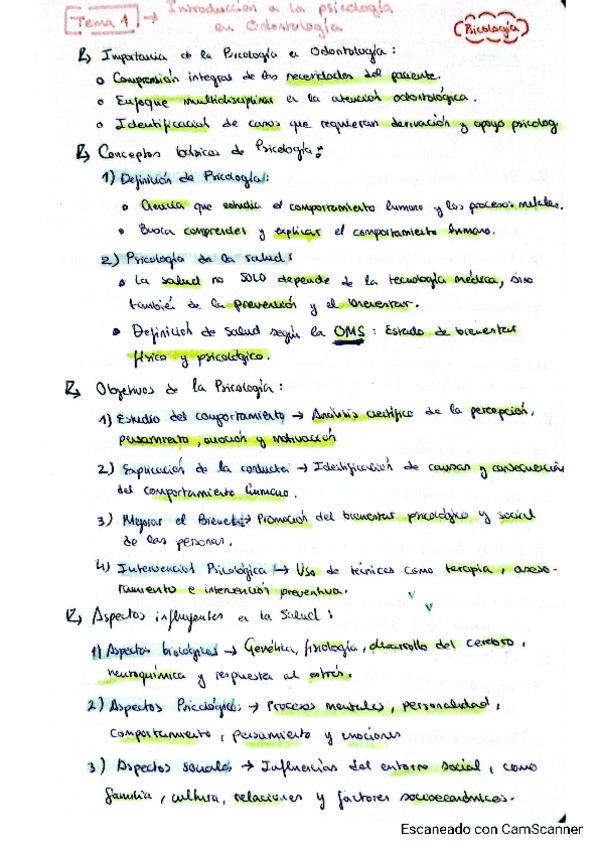 Tema 1 → Introducción a la psicología
en Odontología
Psicología
Importancia de la Psicología en Odontología:
Comprensión integras de las necesidades del paciente.
Enfoque multidisciplinar en la atención odontológica.
Identificación de casos que requieran derivación y apoyo psicolog
Conceptos básicos de Psicología:
1) Definición de Psicología:
Ciencia que estudia el comportamiento humano y los procesos mentales.
Busca comprender y explicar el comportamiento humano.
2) Psicología de la salud:
La salud no SOLO depende de la tecnología médica, sino
también de la prevención y el bienestar.
Definición de salud según la OMS: Estado de bienestar
físico y psicológico.
Objetivos de la Psicología:
1) Estudio del comportamiento → Análisis científico de la percepción,
pensamiento, emoción y motivación
2) Explicación de la conducta → Identificación de causas y consecuencias
del comportamiento humano.
3) Mejorar el Bienestar → Promoción del bienestar psicológico y social
de las personas.
4) Intervención Psicológica → Uso de técnicas como terapia, aseso-
ramiento e intervención preventiva.
Aspectos influyentes en la Salud:
1) Aspectos biológicos → Genética, fisiología, desarrollo del cerebro,
neuroquímica y respuesta al estrés.
2) Aspectos Psicológicos → Procesos mentales, personalidad,
comportamiento, pensamiento y emociones
3) Aspectos sociales → Influencias del entorno social, como
familia, cultura, relaciones y factores socioeconómicos.
Escaneado con CamScanner